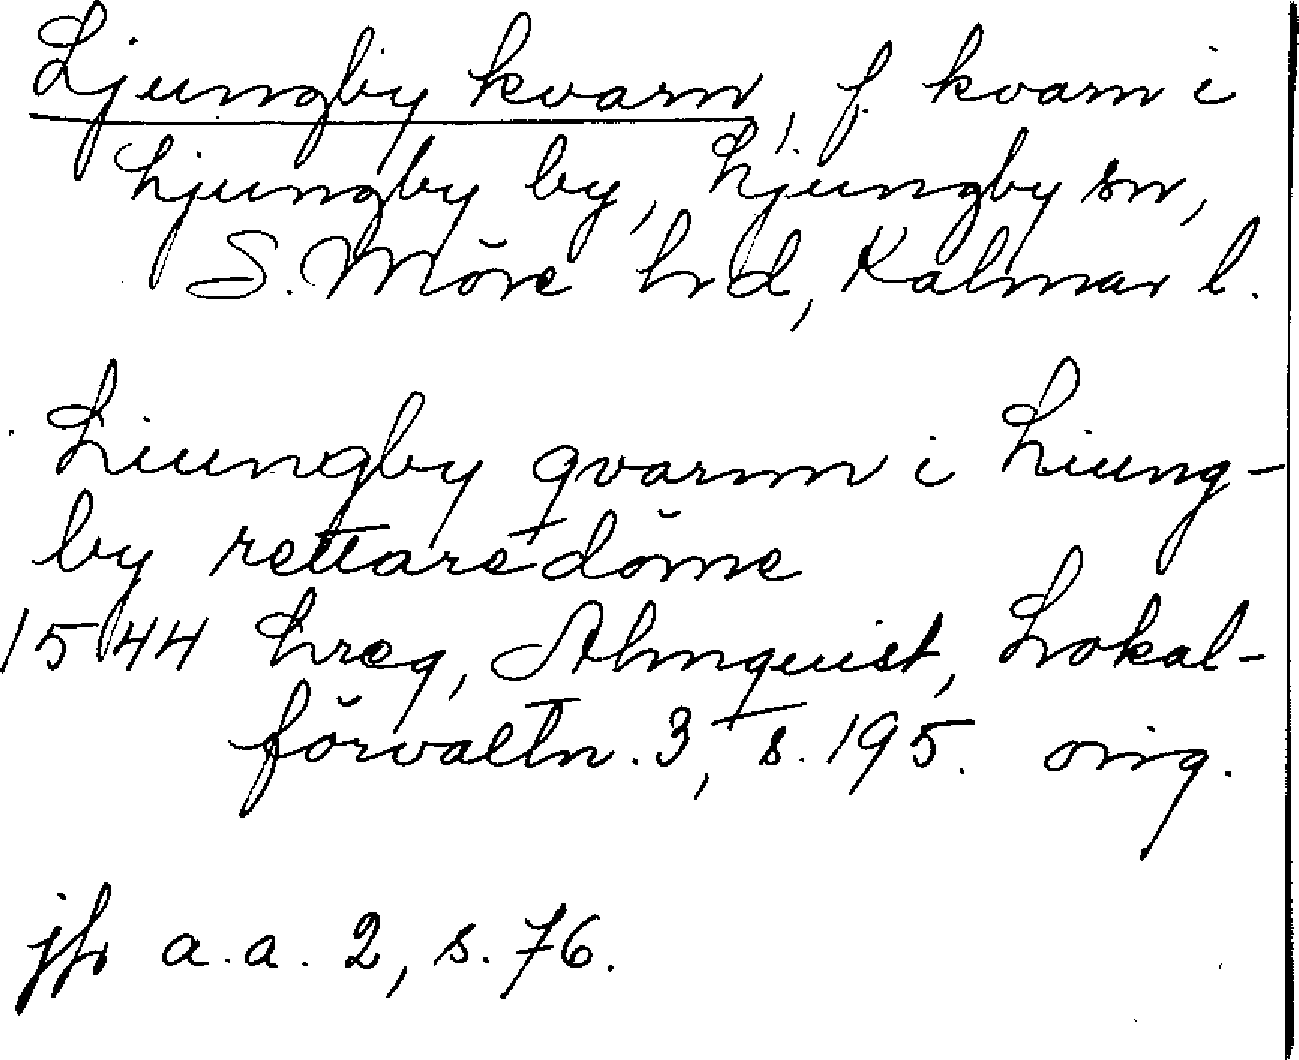 Ljungby kvarn, f. kvarn i
Ljungby by, Ljungby sn,
S. Möre hd, Kalmar l.
Liungby qvarnn i Liung-
by rettaredöme
1544 Lreg, Almquist, Lokal-
förvaltn. 3, s. 195. oing.
jfr a.a. 2, s. 76.